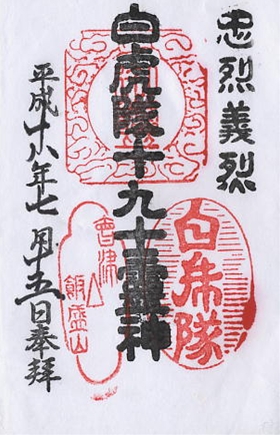 忠烈義烈
白虎隊十九士霊神
平成十八年七月十五日奉拝
白虎隊
會津
飯盛山